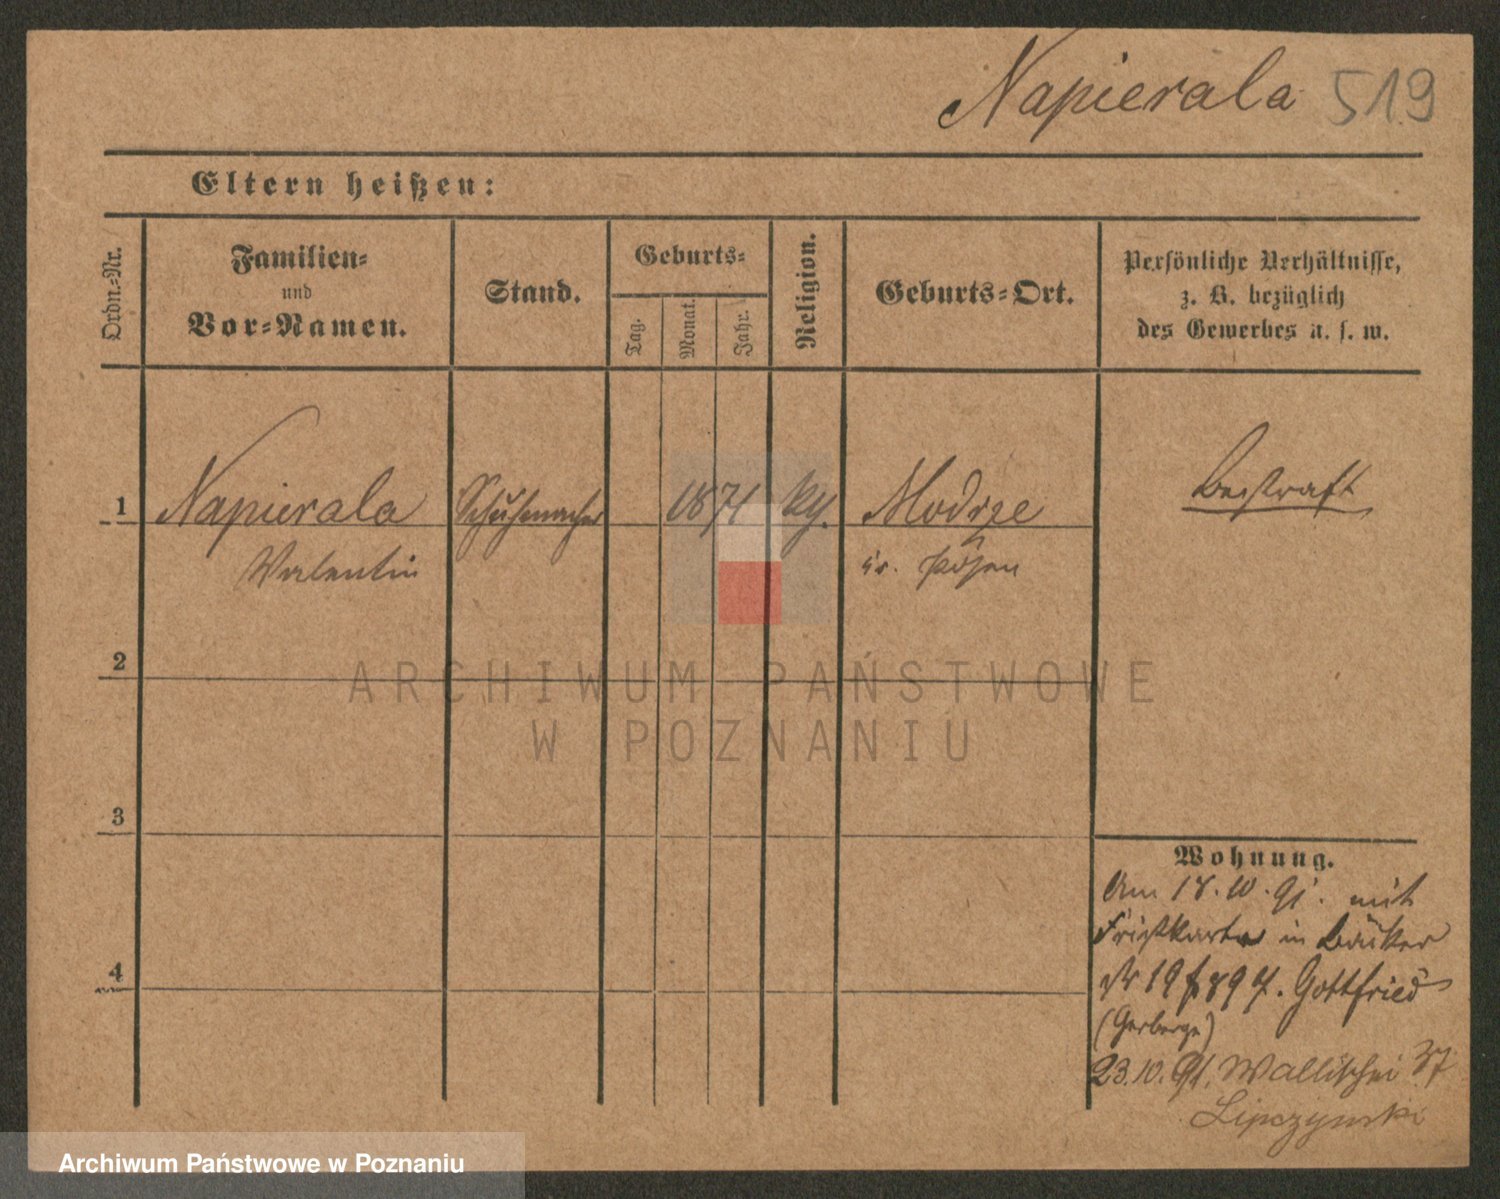 Napierala 519
Eltern heißen:
Ordn.-Nr.
Familien-
und
Vor-Namen.
Stand.
Geburts-
Tag.
Monat.
Jahr.
Religion.
Geburts-Ort.
Persönliche Verhältnisse,
z. B. bezüglich
des Gewerbes u. s. w.
1 Napierala Schuhmacher 1871 Modrze Bestraft
Valentin Kr. Posen
2
3
4
Wohnung.
Am 18.10.91. mit
in Bäcker
19 Gottfried
(Herberge)
23.10.91. Wallischei 37
Lipczynski
ARCHIWUM PAŃSTWOWE
W POZNANIU
Archiwum Państwowe w Poznaniu